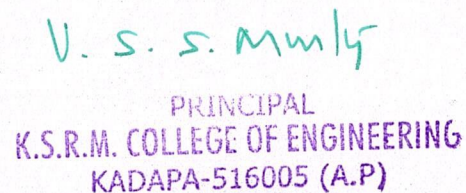 V. S. S. Murly
PRINCIPAL
K.S.R.M. COLLEGE OF ENGINEERING
KADAPA-516005 (A.P)